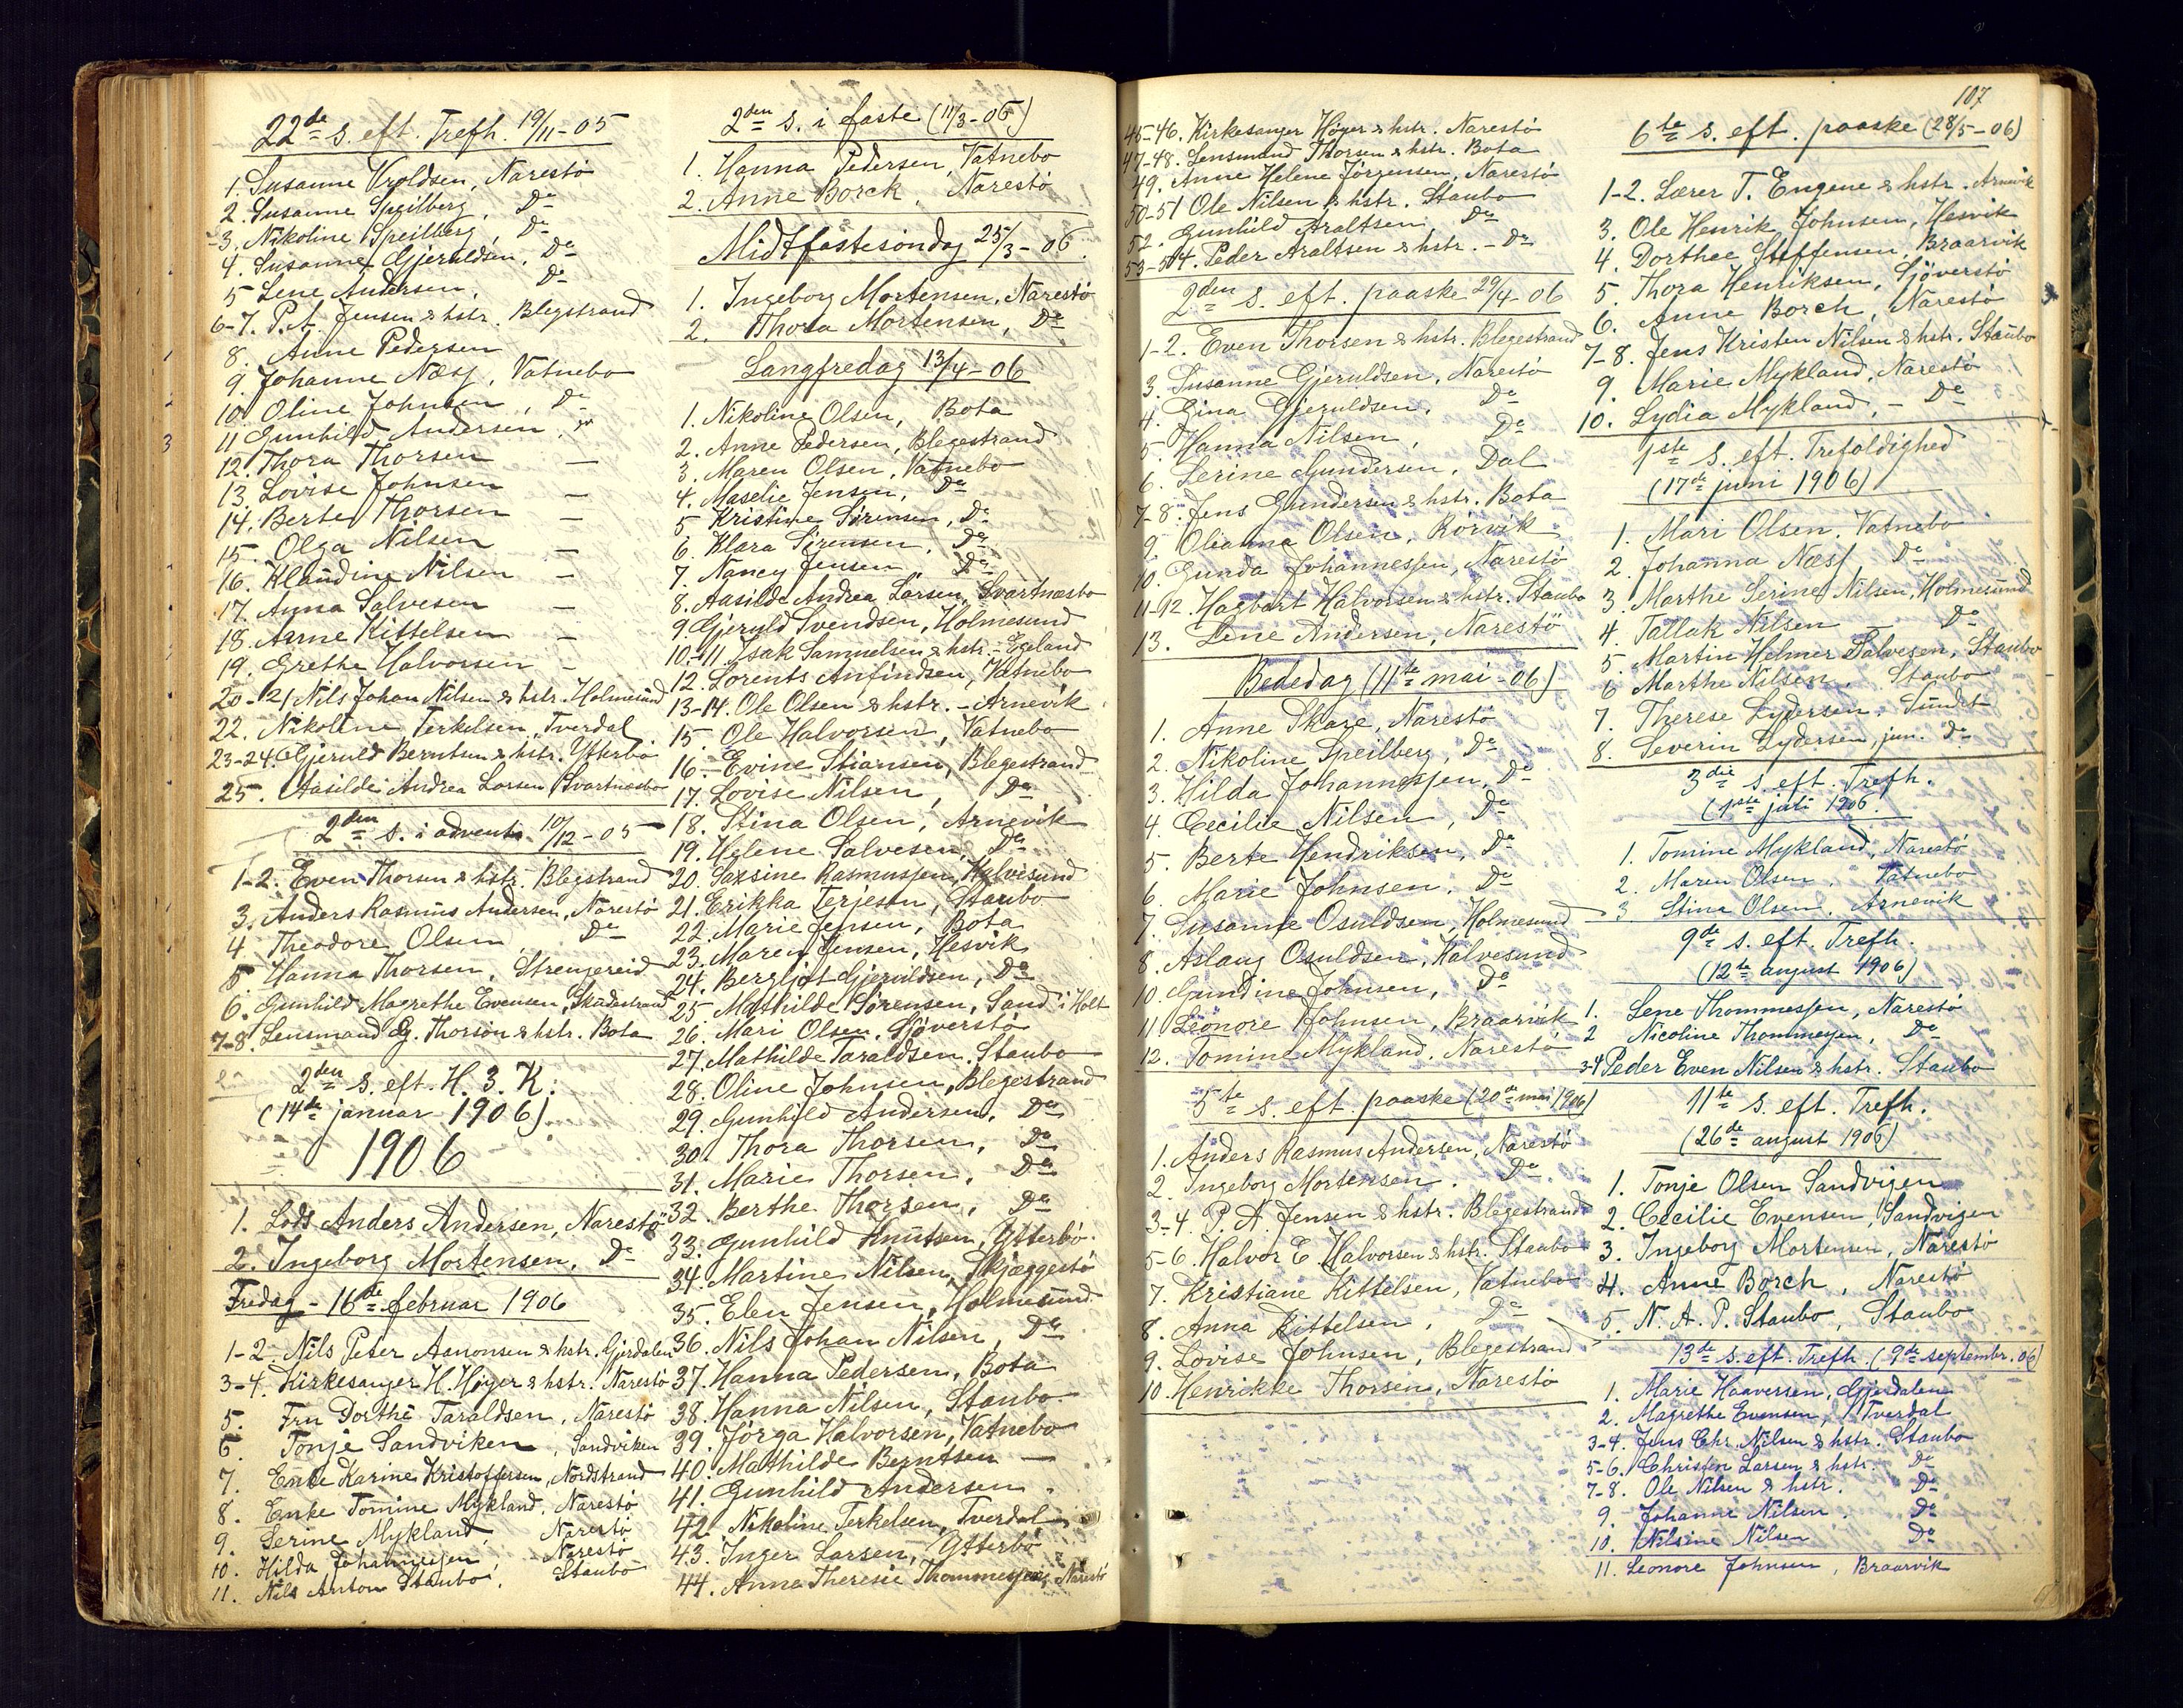 22de s. eft. Trefh. 19/11-05
1. Susanne Vroldsen, Narestö
2. Susanne Speilberg, Do
3. Nikoline Speilberg, Do
4. Susanne Gjeruldsen, Do
5 Lene Andersen, Do
6-7. P. A. Jensen & hstr. Blegstrand
8. Anne Pedersen
9. Johanne Næss, Vatnebo
10. Oline Johnsen, Do
11 Gunhild Andersen,
12. Thora Thorsen —
13. Lovise Johnsen —
14. Berte Thorsen —
15. Olga Nilsen —
16. Klaudine Nilsen —
17. Anna Salvesen —
18. Anne Kittelsen —
19. Grethe Halvorsen —
20-21 Nils Johan Nilsen & hstr. Holmesund
22. Nikoline Terkelsen, Tverdal
23-24. Gjeruld Berntsen & hstr. Ytterbö
25. Aasilde Andrea Larsen Svartnæsbo
2den s. i advent 10/12-05
1-2. Even Thorsen & hstr. Blegstrand
3. Anders Rasmus Andersen, Narestö
4 Theodore Olsen, Do
5 Hanna Thorsen, Strengereid
6. Gunhild Magrethe Evensen,
7-8. Lensmand Eg. Thorson & hstr. Bota
2den s. eft. H. 3. K.
(14de januar 1906).
1906
1. Lods Anders Andersen, Narestö
2. Ingeborg Mortensen, Do
Fredag - 16de februar 1906
1-2 Nils Peter Aanonsen & hstr. Gjerdalen
3-4. Kirkesanger H. Höyer & hstr. Narestö
5. Fru Dorthe Taraldsen, Narestö
6 Tonje Sandviken, Sandviken
7. Enke Karine Kristoffersen, Nordstrand
8. Enke Tomine Mykland, Narestö
9. Serine Mykland, Narestö
10. Hilda Johannessen, Narestö
11. Nils Anton Staubo, Staubo
2den s. i faste (11/3-06)
1. Hanna Pedersen, Vatnebo
2. Anne Borck, Narestö
Midtfastesöndag 25/3-06.
1. Ingeborg Mortensen, Narestö
2. Thora Mortensen, Do
Langfredag 13/4-06
1. Nikoline Olsen, Bota
2. Anne Pedersen, Blegestrand
3. Maren Olsen, Vatnebo
4. Maselie Jensen, Do
5 Kristine Sörensen, Do
6. Klara Sörensen, Do
7. Nancy Jensen Do
8. Aasilde Andrea Larsen, Svartnæsbo
9. Gjeruld Svendsen, Holmesund
10-11. Isak Samuelsen & hstr. - Egeland
12. Lorents Anfindsen, Vatnebo
13-14. Ole Olsen & hstr. - Arnevik
15. Ole Halvorsen, Vatnebo
16. Evine Stiansen, Blegestrand
17. Lovise Nilsen, Do
18. Stina Olsen, Arnevik
19. Helene Salvesen, Do
20. Saxsine Rasmussen, Kalvesund
21. Erikka Terjesen, Staubo
22. Marie Jensen, Bota
23. Maren Jensen, Hesvik
24. Bergljot Gjeruldsen, Do
25 Mathilde Sörensen, Sand i Holt
26. Mari Olsen, Sjöverstö
27. Mathilde Taraldsen, Staubo
28. Oline Johnsen, Blegestrand
29. Gunhild Andersen, Do
30. Thora Thorsen, Do
31. Marie Thorsen, Do
32. Berthe Thorsen, Do
33. Gunhild Knutsen, Ytterbö.
34. Martine Nilsen, Skjæggestö
35. Elen Jensen, Holmesund
36. Nils Johan Nilsen, Do
37. Hanna Pedersen, Bota
38. Hanna Nilsen, Staubo
39. Jörga Halvorsen, Vatnebo
40. Mathilde Berntsen —
41. Gunhild Andersen
42 Nikoline Terkelsen, Tverdal
43. Inger Larsen, Ytterbö
44. Anne Theresie Thommessen, Narestö
45-46. Kirkesanger Höyer & hstr. Narestö
47-48. Lensmand Thorsen & hstr. Bota
49. Anne Helene Jörgensen, Narestö
50-51 Ole Nilsen & hstr. Staubo
52. Gunhild Araltsen Do
53-54. Peder Araltsen & hstr. - Do
2den s. eft. paaske 29/4-06
1-2. Even Thorsen & hstr. Blegestrand
3. Susanne Gjeruldsen, Narestö
4. Gina Gjeruldsen, Do
5. Hanna Nilsen, Do
6. Serine Gundersen, Dal
7-8. Jens Gundersen & hstr. Bota
9. Oleanna Olsen, Rörvik
10. Gunda Johannessen, Narestö
11-12. Hagbart Halvorsen & hstr. Staubo
13. Lene Andersen, Narestö
Bededag (11te mai-06)
1. Anne Skare, Narestö
2. Nikoline Speilberg, Do
3. Hilda Johannessen, Do
4. Cecilie Nilsen, Do
5. Berte Hendriksen, Do
6. Marie Johnsen, Do
7. Susanne Osuldsen, Holmesund
8. Aslaug Osuldsen, Kalvesund
10. Gundine Johnsen, Do
11. Leonore Johnsen, Braarvik
12. Tomine Mykland. Narestö
5te s. eft. paaske (20de mai 1906)
1. Anders Rasmus Andersen, Narestö
2. Ingeborg Mortensen. Do
3-4 P. A. Jensen & hstr. Blegestrand
5-6. Halvor E. Halvorsen & hstr. Staubo
7. Kristiane Kittelsen, Vatnebo
8. Anna Kittelsen, Do
9. Lovise Johnsen, Blegestrand
10. Henrikke Thorsen, Narestö
107
6te s. eft. paaske (28/5-06)
1-2. Lærer T. Engene & hstr. Arnevik
3. Ole Henrik Johnsen, Hesvik
4. Dorthee Steffensen, Braarvik
5. Thora Henriksen, Sjöverstö
6. Anne Borch, Narestö
7-8. Jens Kristen Nilsen & hstr. Staubo
9. Marie Mykland, Narestö
10. Lydia Mykland, - Do
1ste s. eft. Trefoldighed
(17de juni 1906)
1. Mari Olsen, Vatnebo
2. Johanna Næss Do
3. Marthe Serine Nilsen, Holmesund
4. Tallak Nilsen — Do
5. Martin Helmer Salvesen, Staubo
6 Marthe Nilsen, Staubo
7. Therese Lydersen, Sundet
8. Severin Lydersen, jun. Do
3die s. eft. Trefh.
(1ste juli 1906.
1. Tomine Mykland, Narestö
2. Maren Olsen, Vatnebo
3 Stina Olsen, Arnevik
9de s. eft. Trefh.
(12te august 1906)
1. Lene Thommessen, Narestö
2 Nicoline Thommessen, Do
3-4 Peder Even Nilsen & hstr. Staubo
11te s. eft. Trefh.
(26de august 1906)
1. Tonje Olsen Sandvigen
2. Cecilie Evensen, Sandvigen
3. Ingeborg Mortensen, Narestö
4. Anne Borch, Narestö
5. N. A. P. Staubo, Staubo
13de s. eft. Trefh. (9de septembr. 06)
1. Marie Haaversen, Gjerdalen
2. Magrethe Evensen, Tverdal
3-4. Jens Chr. Nilsen & hstr. Staubo
5-6. Christen Larsen & hstr. Do
7-8. Ole Nilsen & hstr. Do
9. Johanne Nilsen. Do
10. Nilsine Nilsen Do
11. Leonore Johnsen, Braarvik